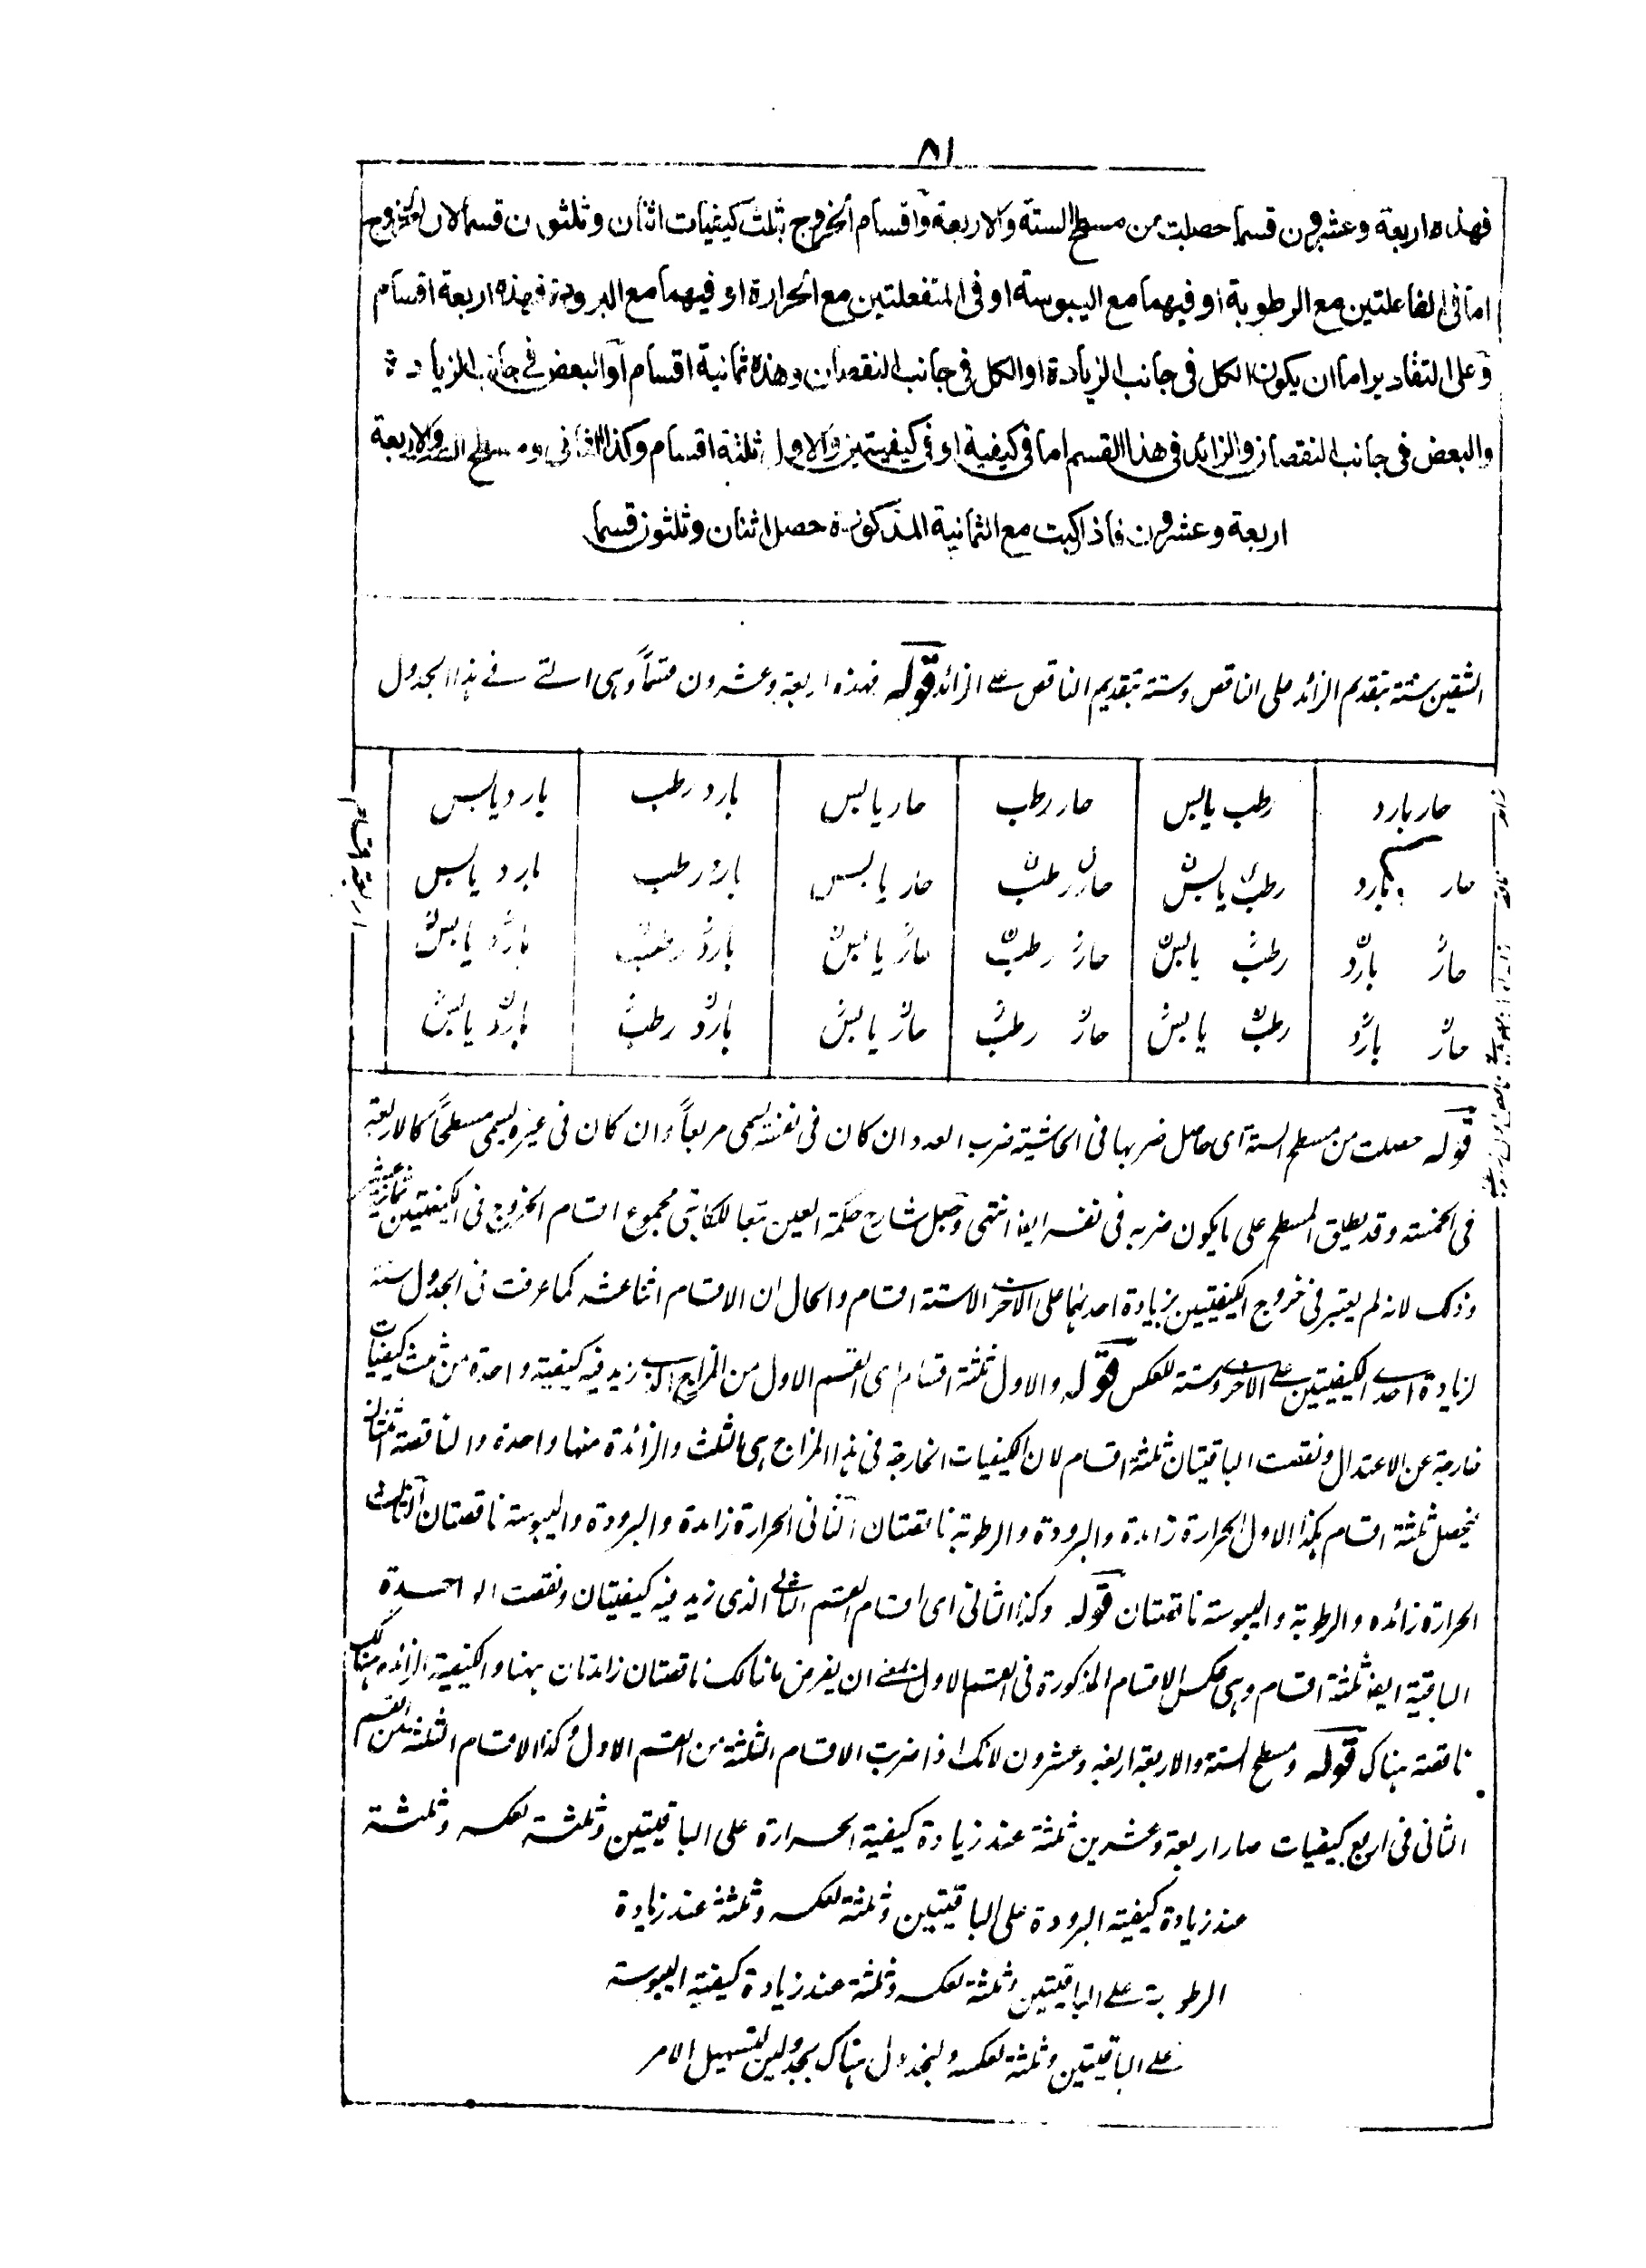 ٨١
فهذه اربعة وعشرون قسما حصلت من مسطح الستة والاربعة واقسام الخروج بثلث كيفيات اثنان وثلثون قسما لان الخروج
اما فى الفاعلتين مع الرطوبة او فيهما مع اليبوسة او فى المنفعلتين مع الحرارة او فيهما مع البرودة فهذه اربعة اقسام
وعلى التقادير اما ان يكون الكل فى جانب الزيادة او الكل فى جانب النقصان وهذه ثمانية اقسام او البعض فى جانب الزيادة
والبعض فى جانب النقصان والزائد فى هذا القسم اما فى كيفية او فى كيفيتين والاول ثلثة اقسام وكذا الثانى ومسطح الستة والاربعة
اربعة وعشرون فاذا ركبت مع الثمانية المذكورة حصل اثنان وثلثون قسما
الشقين ستة بتقديم الزائد على الناقص وستة بتقديم الناقص على الزائد قوله فهذه اربعة وعشرون قسماً وهى التے فے هذا الجدول
حار بارد رطب يابس حار رطب حار يابس بارد رطب بارد يابس
حار بارد رطب يابس حار رطب حار يابس بارد رطب بارد يابس
حار بارد رطب يابس حار رطب حار يابس بارد رطب بارد يابس
حار بارد رطب يابس حار رطب حار يابس بارد رطب بارد يابس
قوله حصلت من مسطح الستة آى حاصل ضربها فى الحاشية ضرب العدد ان كان فى نفسه يسمى مربعاً وان كان فى غيره يسمى مسطحاً كالاربعة
فى الخمسة وقد يطلق المسطح على ما يكون ضربه فى نفسه ايضا انتهى وجعل شارح حكمة العين تبعا للكاتبى مجموع اقسام الخروج فى الكيفيتين ثمانية عشر
وذلك لانه لم يعتبر فى خروج الكيفيتين بزيادة احدهما على الاخرى الا ستة اقسام والحال ان الاقسام اثنا عشر كما عرفت فى الجدول ستة
لزيادة احدے الكيفيتين علے الاخرى وستة للعكس قوله والاول ثلثة اقسام اى القسم الاول من المزاج الذى زيد فيه كيفية واحدة من ثلث كيفيات
خارجة عن الاعتدال ونقصت الباقيتان ثلثة اقسام لان الكيفيات الخارجة فى هذا المزاج هى الثلث والزائدة منها واحدة والناقصة اثنتان
فيحصل ثلثة اقسام هكذا الاول الحرارة زائدة والبرودة والرطوبة ناقصتان الثانى الحرارة زائدة والبرودة واليبوسة ناقصتان الثالث
الحرارة زائدة والرطوبة واليبوسة ناقصتان قوله وكذا الثانى اى اقسام القسم الثانے الذى زيد فيه كيفيتان ونقصت الواحدة
الباقية ايضا ثلثة اقسام وهى عكس الاقسام المذكورة فى القسم الاول يعنے ان يفرض ما هنالك ناقصتان زائدتان ههنا والكيفية الزائدة هنالك
ناقصة هناك قوله ومسطح الستة والاربعة اربعة وعشرون لانك اذا ضربت الاقسام الثلثة من القسم الاول وكذا الاقسام الثلثة من القسم
الثانى فى اربع كيفيات صار اربعة وعشرين ثلثة عند زيادة كيفية الحرارة على الباقيتين وثلثة لعكسه وثلثة
عند زيادة كيفية البرودة على الباقيتين وثلثة لعكسه وثلثة عند زيادة
الرطوبة علے الباقيتين وثلثة لعكسه وثلثة عند زيادة كيفية اليبوسة
علے الباقيتين وثلثة لعكسه ولنجدول هناك بجدولين لتسهيل الامر